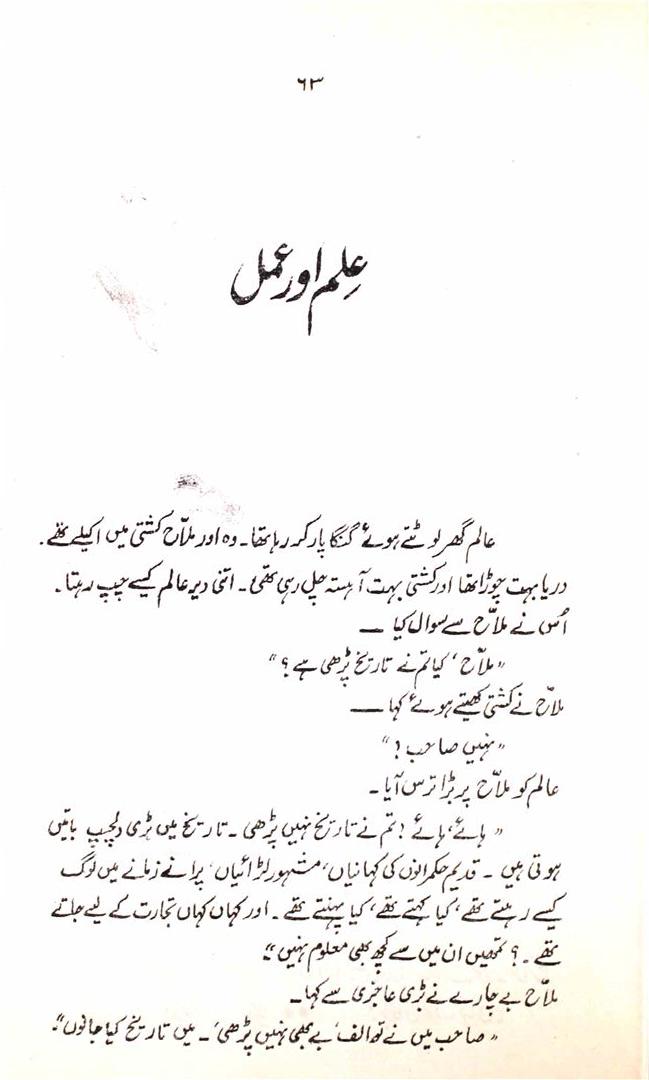 ۶۳
عِلم اور عمل
عالم گھر لوٹتے ہوئے گنگا پار کر رہا تھا۔ وہ اور ملاّح کشتی میں اکیلے تھے۔
دریا بہت چوڑا تھا اور کشتی بہت آہستہ چل رہی تھی۔ اتنی دیر عالم کیسے چپ رہتا۔
اُس نے ملاّح سے سوال کیا —
"ملاّح، کیا تم نے تاریخ پڑھی ہے؟"
ملاّح نے کشتی کھیتے ہوئے کہا —
"نہیں صاحب!"
عالم کو ملاّح پر بڑا ترس آیا۔
"ہائے، ہائے! تم نے تاریخ نہیں پڑھی۔ تاریخ میں بڑی دلچسپ باتیں
ہوتی ہیں۔ قدیم حکمرانوں کی کہانیاں، مشہور لڑائیاں، پرانے زمانے میں لوگ
کیسے رہتے تھے، کیا کہتے تھے، کیا پہنتے تھے۔ اور کہاں کہاں تجارت کے لیے جاتے
تھے۔؟ تمھیں ان میں سے کچھ بھی معلوم نہیں"۔
ملاّح بے چارے نے بڑی عاجزی سے کہا۔
"صاحب میں نے تو الف، بے بھی نہیں پڑھی،۔ میں تاریخ کیا جانوں"۔